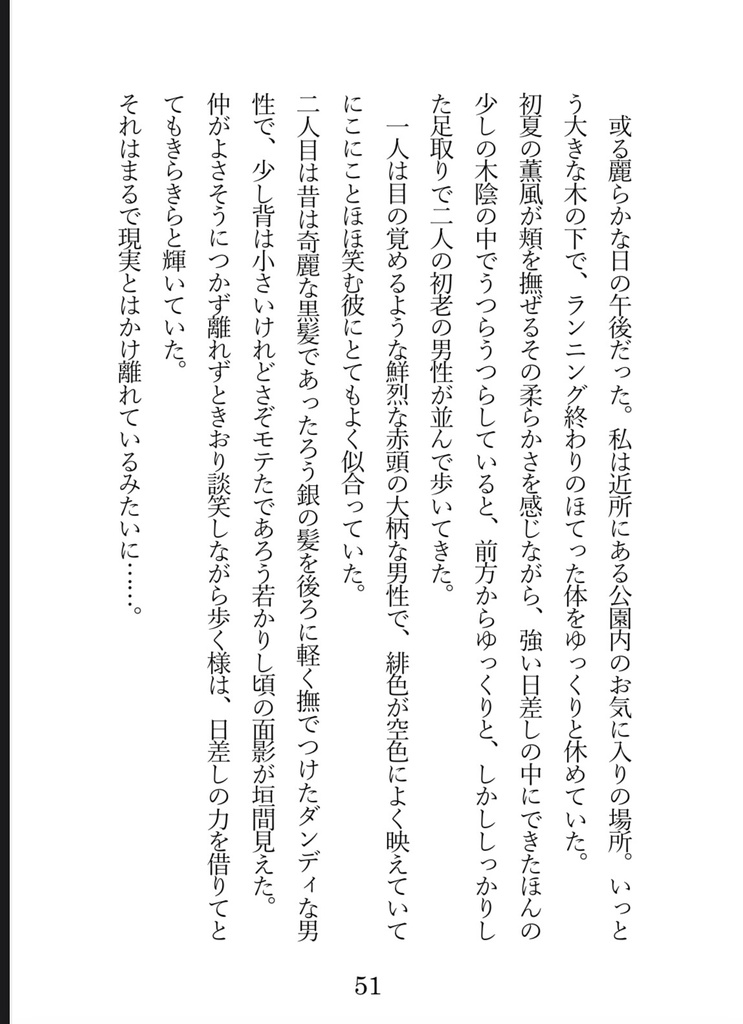 或る麗らかな日の午後だった。私は近所にある公園内のお気に入りの場所。いっと
う大きな木の下で、ランニング終わりのほてった体をゆっくりと休めていた。
初夏の薫風が頬を撫ぜるその柔らかさを感じながら、強い日差しの中にできたほんの
少しの木陰の中でうつらうつらしていると、前方からゆっくりと、しかししっかりし
た足取りで二人の初老の男性が並んで歩いてきた。
一人は目の覚めるような鮮烈な赤頭の大柄な男性で、緋色が空色によく映えていて
にこにことほほ笑む彼にとてもよく似合っていた。
二人目は昔は奇麗な黒髪であったろう銀の髪を後ろに軽く撫でつけたダンディな男
性で、少し背は小さいけれどさぞモテたであろう若かりし頃の面影が垣間見えた。
仲がよさそうにつかず離れずときおり談笑しながら歩く様は、日差しの力を借りてと
てもきらきらと輝いていた。
それはまるで現実とはかけ離れているみたいに……。
51